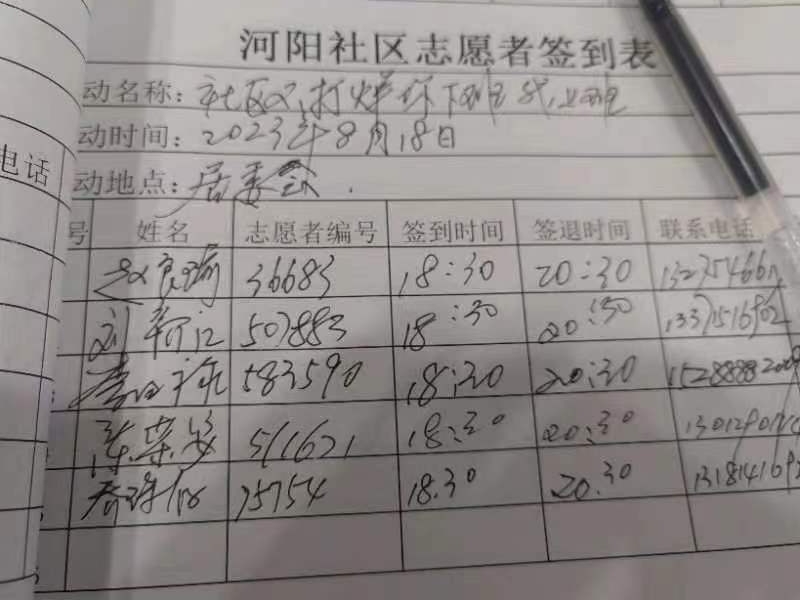 河阳社区志愿者签到表
动名称: 社区不打烊你下班我上班
动时间: 2023年8月18日
电话
动地点: 居委会.
号 姓名 志愿者编号 签到时间 签退时间 联系电话
赵良瑞 36683 18:30 20:30
刘 507883 18:30 20:30 13371516802
583590 18:30 20:30
陈荣 511621 18:30 20:30
75754 18.30 20.30